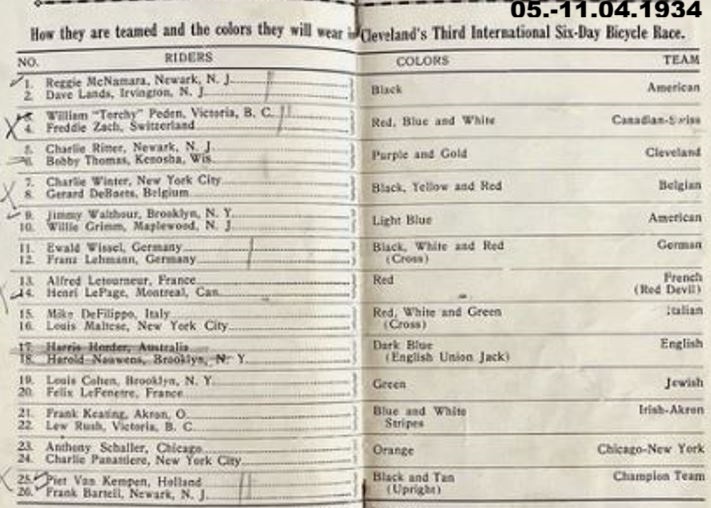 05.-11.04.1934
How they are teamed and the colors they will wear in Cleveland's Third International Six-Day Bicycle Race.
NO. RIDERS COLORS TEAM
1. Reggie McNamara, Newark, N. J.
2. Dave Lands, Irvington, N. J.
Black American
3. William "Torchy" Peden, Victoria, B. C.
4. Freddie Zach, Switzerland
Red, Blue and White Canadian-Swiss
5. Charlie Ritter, Newark, N. J.
6. Bobby Thomas, Kenosha, Wis.
Purple and Gold Cleveland
7. Charlie Winter, New York City
8. Gerard DeBaets, Belgium
Black, Yellow and Red Belgian
9. Jimmy Walthour, Brooklyn, N. Y.
10. Willie Grimm, Maplewood, N. J.
Light Blue American
11. Ewald Wissel, Germany
12. Franz Lehmann, Germany
Black, White and Red German
(Cross)
13. Alfred Letourneur, France
14. Henri LePage, Montreal, Can.
Red French
(Red Devil)
15. Mike DeFilippo, Italy
16. Louis Maltese, New York City
Red, White and Green Italian
(Cross)
17. Harris Horder, Australia
18. Harold Nauwens, Brooklyn, N. Y.
Dark Blue English
(English Union Jack)
19. Louis Cohen, Brooklyn, N. Y.
20. Felix LeFenetre, France
Green Jewish
21. Frank Keating, Akron, O.
22. Lew Rush, Victoria, B. C.
Blue and White Irish-Akron
Stripes
23. Anthony Schaller, Chicago
24. Charlie Panattiere, New York City
Orange Chicago-New York
25. Piet Van Kempen, Holland
26. Frank Bartell, Newark, N. J.
Black and Tan Champion Team
(Upright)